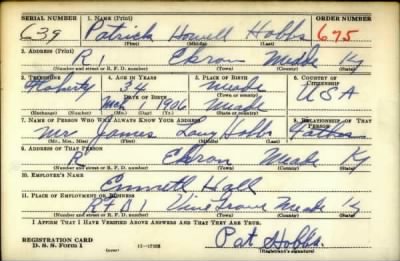 SERIAL NUMBER 1. NAME (Print) ORDER NUMBER
639 Patrick Howell Hobbs 675
(First) (Middle) (Last)
2. ADDRESS (Print)
R 1 Ekron Meade Ky
(Number and street or R. F. D. number) (Town) (County) (State)
3. TELEPHONE 4. AGE IN YEARS 5. PLACE OF BIRTH 6. COUNTRY OF CITIZENSHIP
Flaherty 34 Meade USA
DATE OF BIRTH
1906 Meade
(Exchange) (Number) (Mo.) (Day) (Yr.) (State or country)
7. NAME OF PERSON WHO WILL ALWAYS KNOW YOUR ADDRESS 8. RELATIONSHIP OF THAT PERSON
Mr. James Hobbs Father
(Mr., Mrs., Miss) (First) (Middle) (Last)
9. ADDRESS OF THAT PERSON
R Ekron Meade Ky
(Number and street or R. F. D. number) (Town) (County) (State)
10. EMPLOYER'S NAME
Hall
11. PLACE OF EMPLOYMENT OR BUSINESS
RFD 1 Vine Grove Meade
(Number and street or R. F. D. number) (Town) (County) (State)
I AFFIRM THAT I HAVE VERIFIED ABOVE ANSWERS AND THAT THEY ARE TRUE.
REGISTRATION CARD
D. S. S. Form 1 Pat Hobbs
(Registrant's signature)